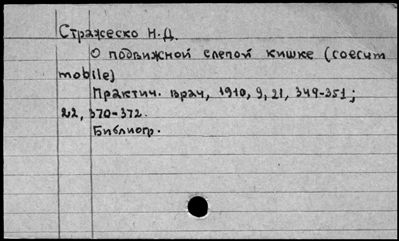 Стражеско Н.Д.
О подвижной слепой кишке (coecum
mobile)
Практич. врач, 1910, 9, 21, 349-351;
22, 370-372.
Библиогр.